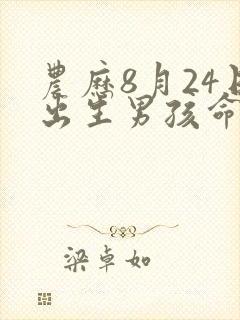 農歷8月24日
出生男孩命
梁卓如